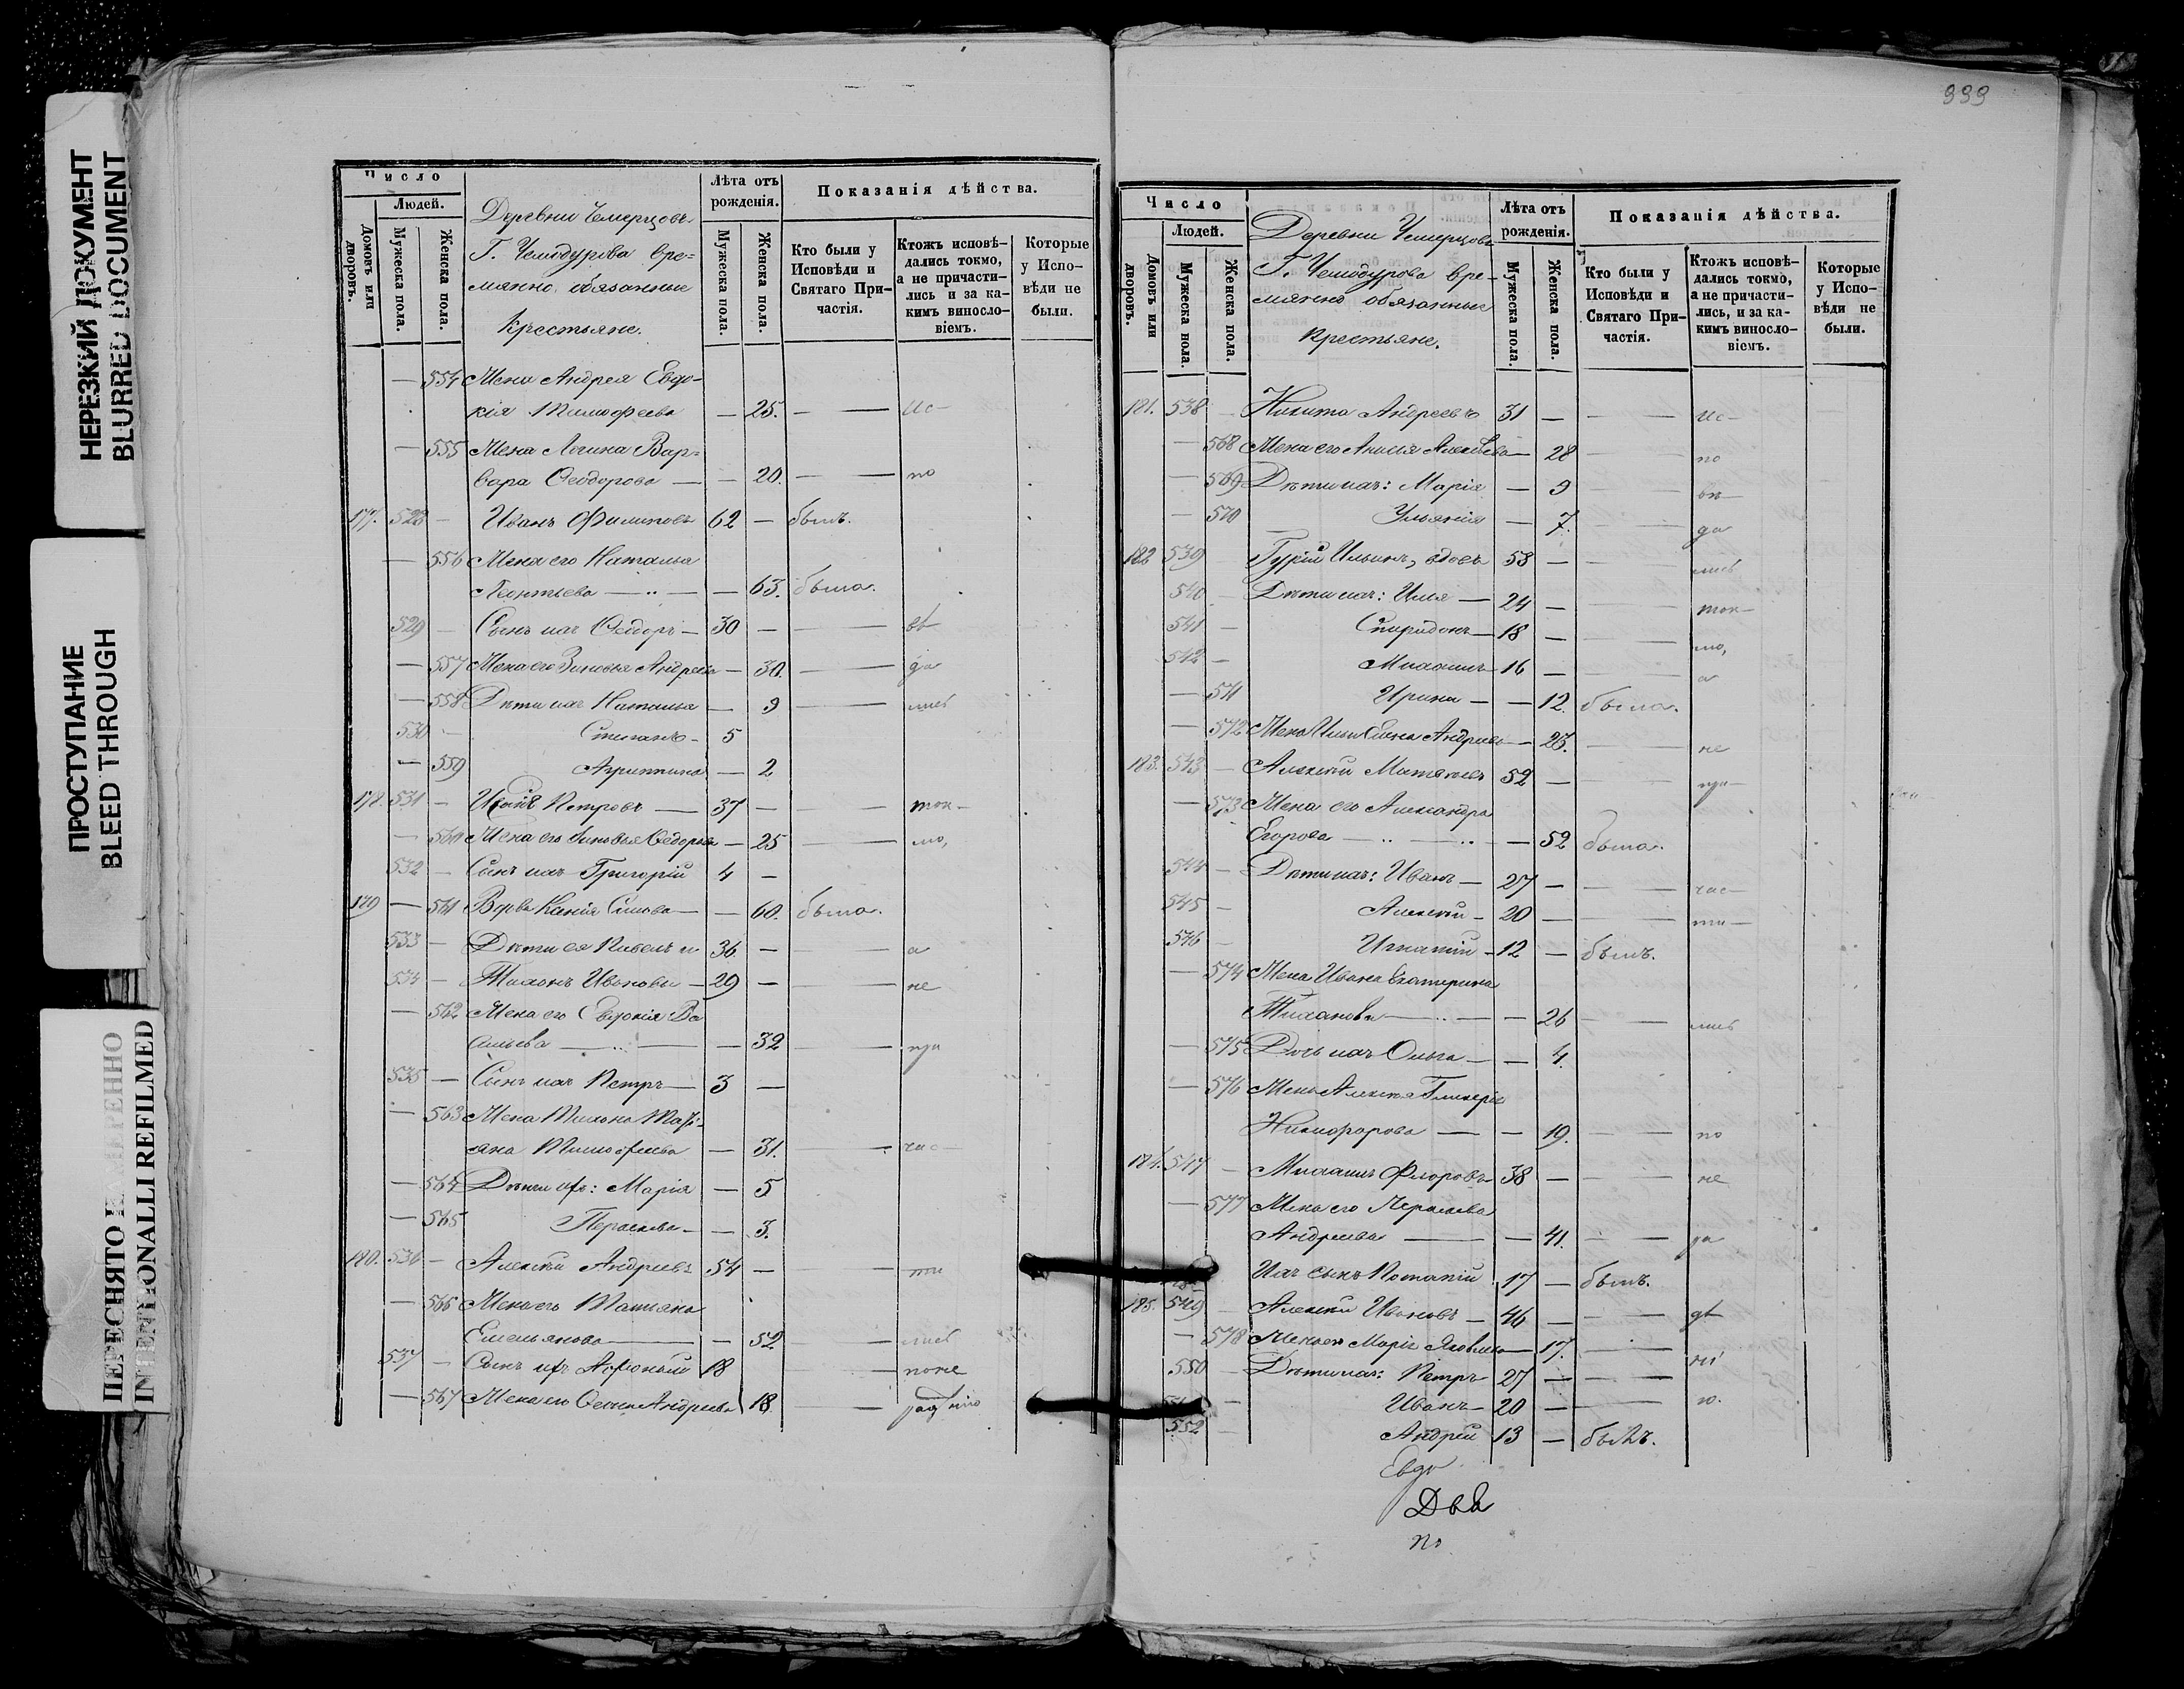 НЕРЕЗКИЙ ДОКУМЕНТ
BLURRED DOCUMENT
ПРОСТУПАНИЕ
BLEED THROUGH
ПЕРЕСНЯТО НАМЕРЕННО
INTENTIONALLI REFILMED
Число
Людей.
Домовъ или дворовъ.
Мужеска пола.
Женска пола.
Деревни Чемерцовъ
Г. Чемодурова вре=
мянно обязанные
Крестьяне.
Лѣта отъ рожденія.
Мужеска пола.
Женска пола.
Показанія дѣйства.
Кто были у Исповѣди и Святаго При-частія.
Ктожъ исповѣ-дались токмо, а не причасти-лись и за ка-кимъ винословіемъ.
Которые у Испо-вѣди не были.
— 554 Жена Андрея Евдо-
кія Тимофеева — 25. — — Ис-
— 555 Жена Логина Вар=
вара Ѳеодорова — — 20. — — по
177. 528 — Иванъ Филиповъ 62 — былъ.
— 556 Жена его Наталья
Леонтьева — — 63. была.
529 — Сынъ ихъ Ѳеодоръ — 30 — — вѣ
— 557 Жена его Зиновья Андреева — 30. — — да
— 558 Дѣти ихъ Наталья — 9 — — лись
530 — Степанъ — 5
— 559 Агрипина — 2
178. 531 — Иванъ Петровъ — 37 — — — ток-
— 560 Жена его Зиновья Ѳедорова — 25 — — мо,
532 — Сынъ ихъ Григорій 4 —
179 — 561 Вдова Ксенія — — 60. была.
533 — Дѣти ея Павелъ и 36 — — — а
534 — Тихонъ Ивановы — 29 — — — не
— 562 Жена его Евдокія Ва
сильева — — — 32 — — при
535 — Сынъ ихъ Петръ — 3 —
— 563 Жена Тихона Тать-
яна Тимофеева — 31. — — час-
— 564 Дѣти ихъ: Марія — 5
— 565 Параскева — — 3.
180. 536 — Алексѣй Андреевъ 54 — — — ти
— 566 Жена его Татьяна
Емельянова — — 52 — — лись
537 — Сынъ ихъ Аѳонасій 18 — — по не
— 567 Жена его Андреева 18 — —
999
Число
Людей.
Домовъ или дворовъ.
Мужеска пола
Женска пола.
Деревни Чемерцовъ
Г. Чемодурова вре-
мянно обязанные
Крестьяне.
Лѣта отъ рожденія.
Мужеска пола
Женска пола.
Показанія дѣйства.
Кто были у Исповѣди и Святаго При-частія.
Ктожъ исповѣ-дались токмо, а не причасти-лись, и за ка-кимъ винословіемъ.
Которые у Испо-вѣди не были.
181. 538 — Никита Андреевъ 31 — — — ис-
— 568 Жена его Алексѣева — 28 — — по
— 569 Дѣти ихъ: Марія — 9 — вѣ-
— 570 Ульянія — 7. — — да
182 539 Гурій Ильинъ, вдовъ 53 — — лись
540 — Дѣти ихъ: Илья — 24 — — ток-
541 — Спиридонъ — 18 — — — мо,
542 — Михаилъ — 16 — — — а
— 571 Ирина — — 12. была.
— 572 Жена Ильи Елена Андреева — 23. — — не
183. 543 — Алексѣй Матвѣевъ 52 — — — при-
— 573 Жена его Александра
Егорова — — — 52 была.
544 — Дѣти ихъ: Иванъ — 27 — — — час-
545 — Алексѣй — 20 — — — ти-
546 — Игнатій — 12 — былъ.
— 574 Жена Ивана Екатерина
Тиханова — — — 26 — — лись
— 575 Дочь ихъ Ольга — — 4.
— 576 Жена Алексѣя Гликерія
Никифорова — — 19. — — по
184. 547 — Михаилъ Флоровъ 38 — — — не
— 577 Жена его Параскева
Андреева — — 41. — — ра
Ихъ сынъ Потапій 17 — былъ.
185. 549 — Алексѣй Ивановъ — 46 — — — дѣ
— 578 Жена его Марія Яковлева — 17. — —
550 — Дѣти ихъ: Петръ 27 — — —
— Иванъ — 20 — — — ю.
552 — Андрей 13 — былъ.
Евдо
Два
по